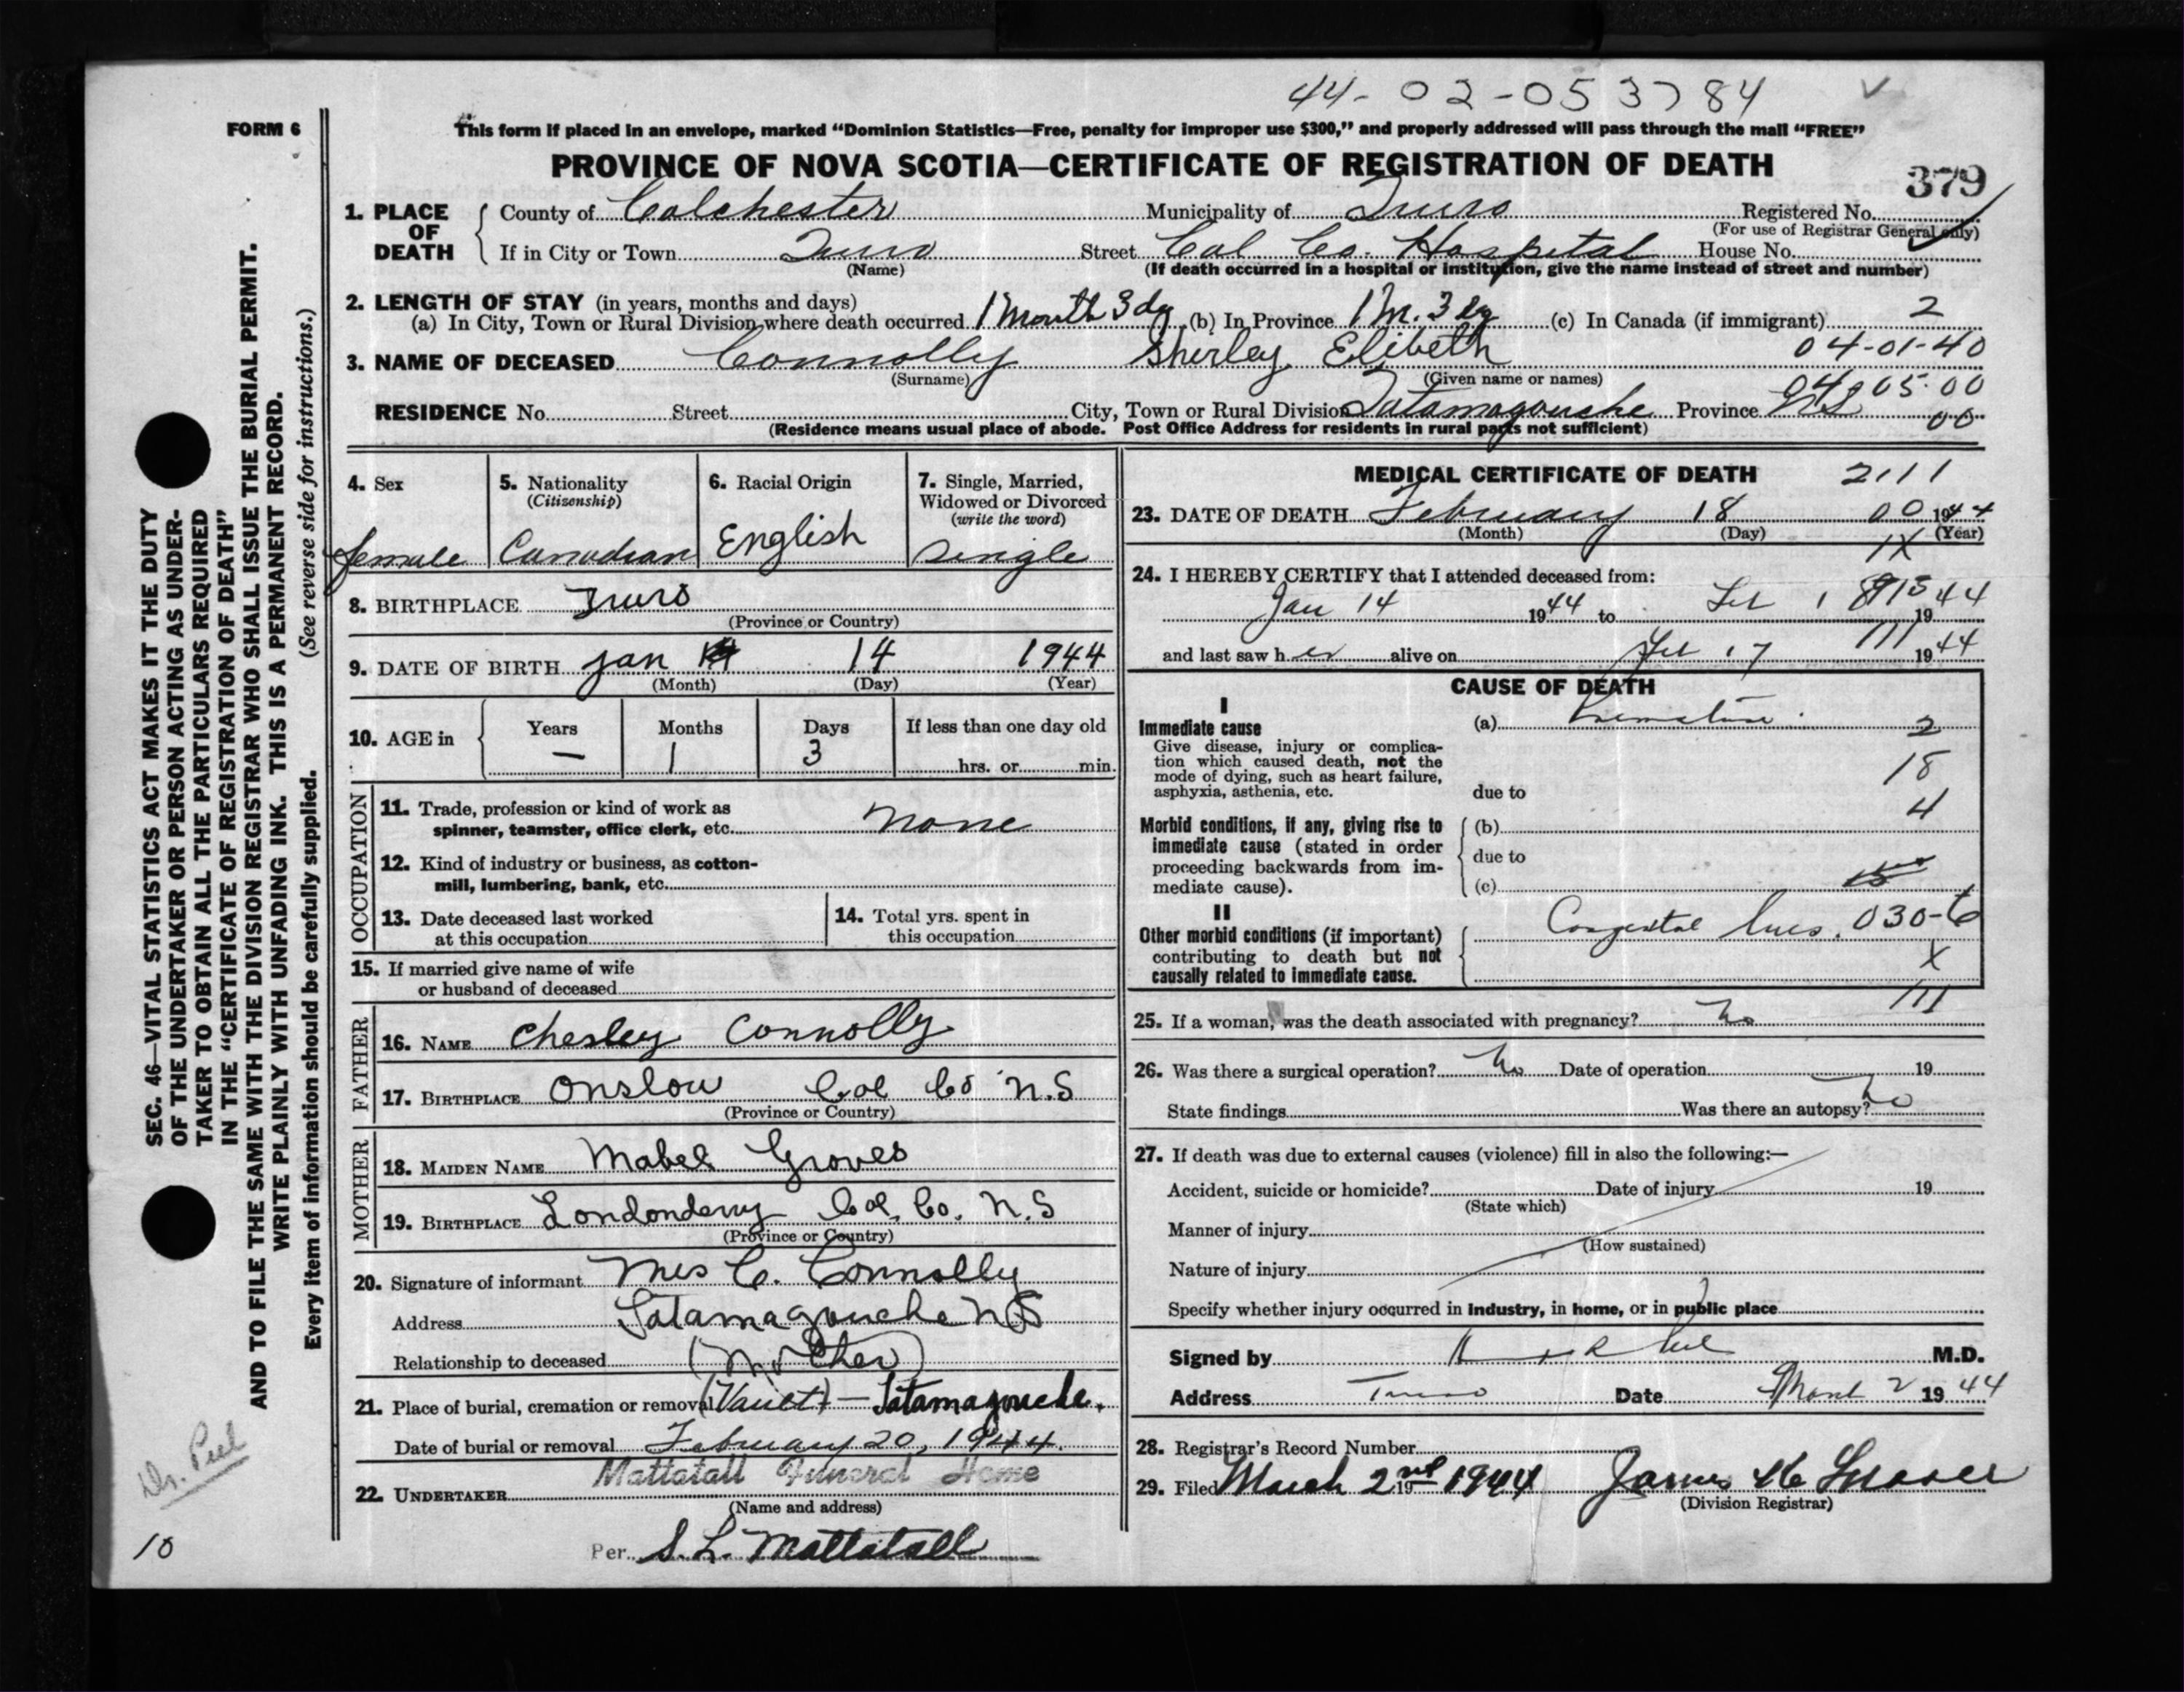 44-02-053784
FORM 6
This form if placed in an envelope, marked “Dominion Statistics—Free, penalty for improper use $300,” and properly addressed will pass through the mail “FREE”
PROVINCE OF NOVA SCOTIA—CERTIFICATE OF REGISTRATION OF DEATH
379
1. PLACE OF DEATH
County of Colchester Municipality of Truro Registered No.
(For use of Registrar General only)
If in City or Town Truro Street Col Co. Hospital House No.
(Name) (If death occurred in a hospital or institution, give the name instead of street and number)
2. LENGTH OF STAY (in years, months and days)
(a) In City, Town or Rural Division where death occurred 1 Month 3 dy (b) In Province 1 M. 3 dy (c) In Canada (if immigrant) 2
04-01-40
3. NAME OF DECEASED Connolly Sherley Elibeth
(Surname) (Given name or names)
04 05-00
RESIDENCE No. Street City, Town or Rural Division Tatamagouche Province NS 00
(Residence means usual place of abode. Post Office Address for residents in rural parts not sufficient)
4. Sex female
5. Nationality (Citizenship) Canadian
6. Racial Origin English
7. Single, Married, Widowed or Divorced (write the word) Single
8. BIRTHPLACE Truro
(Province or Country)
9. DATE OF BIRTH Jan 14 1944
(Month) (Day) (Year)
10. AGE in Years — Months 1 Days 3 If less than one day old hrs. or min.
OCCUPATION
11. Trade, profession or kind of work as
spinner, teamster, office clerk, etc. None
12. Kind of industry or business, as cotton-
mill, lumbering, bank, etc.
13. Date deceased last worked
at this occupation
14. Total yrs. spent in
this occupation
15. If married give name of wife
or husband of deceased
FATHER
16. NAME Chesley Connolly
17. BIRTHPLACE Onslow Col Co N.S
(Province or Country)
MOTHER
18. MAIDEN NAME Mabel Groves
19. BIRTHPLACE Londonderry Col. Co. N.S
(Province or Country)
20. Signature of informant Mrs C. Connolly
Address Tatamagouche NS
Relationship to deceased (Mother)
21. Place of burial, cremation or removal (Vault) — Tatamagouche.
Date of burial or removal February 20, 1944.
Mattatall Funeral Home
22. UNDERTAKER
(Name and address)
Per S. L. Mattatall
MEDICAL CERTIFICATE OF DEATH 2111
23. DATE OF DEATH February 18 00 1944
(Month) (Day) (Year)
1X
24. I HEREBY CERTIFY that I attended deceased from:
Jan 14 1944 to Feb 18 1944
and last saw her alive on Feb 17 111 1944
CAUSE OF DEATH
I
Immediate cause
Give disease, injury or complica-
tion which caused death, not the
mode of dying, such as heart failure,
asphyxia, asthenia, etc.
(a) Premature. 2
18
due to
4
Morbid conditions, if any, giving rise to
immediate cause (stated in order
proceeding backwards from im-
mediate cause).
(b)
due to
(c)
II
Other morbid conditions (if important)
contributing to death but not
causally related to immediate cause.
Congenital lues. 030-6
X
111
25. If a woman, was the death associated with pregnancy? No
26. Was there a surgical operation? No Date of operation 19
State findings Was there an autopsy? No
27. If death was due to external causes (violence) fill in also the following:—
Accident, suicide or homicide? Date of injury 19
(State which)
Manner of injury
(How sustained)
Nature of injury
Specify whether injury occurred in industry, in home, or in public place
Signed by M.D.
Address Truro Date March 2 1944
28. Registrar's Record Number
29. Filed March 2nd 19 1944 James
(Division Registrar)
SEC. 46—VITAL STATISTICS ACT MAKES IT THE DUTY
OF THE UNDERTAKER OR PERSON ACTING AS UNDER-
TAKER TO OBTAIN ALL THE PARTICULARS REQUIRED
IN THE “CERTIFICATE OF REGISTRATION OF DEATH”
AND TO FILE THE SAME WITH THE DIVISION REGISTRAR WHO SHALL ISSUE THE BURIAL PERMIT.
WRITE PLAINLY WITH UNFADING INK. THIS IS A PERMANENT RECORD.
Every item of information should be carefully supplied. (See reverse side for instructions.)
Dr. Peel
10